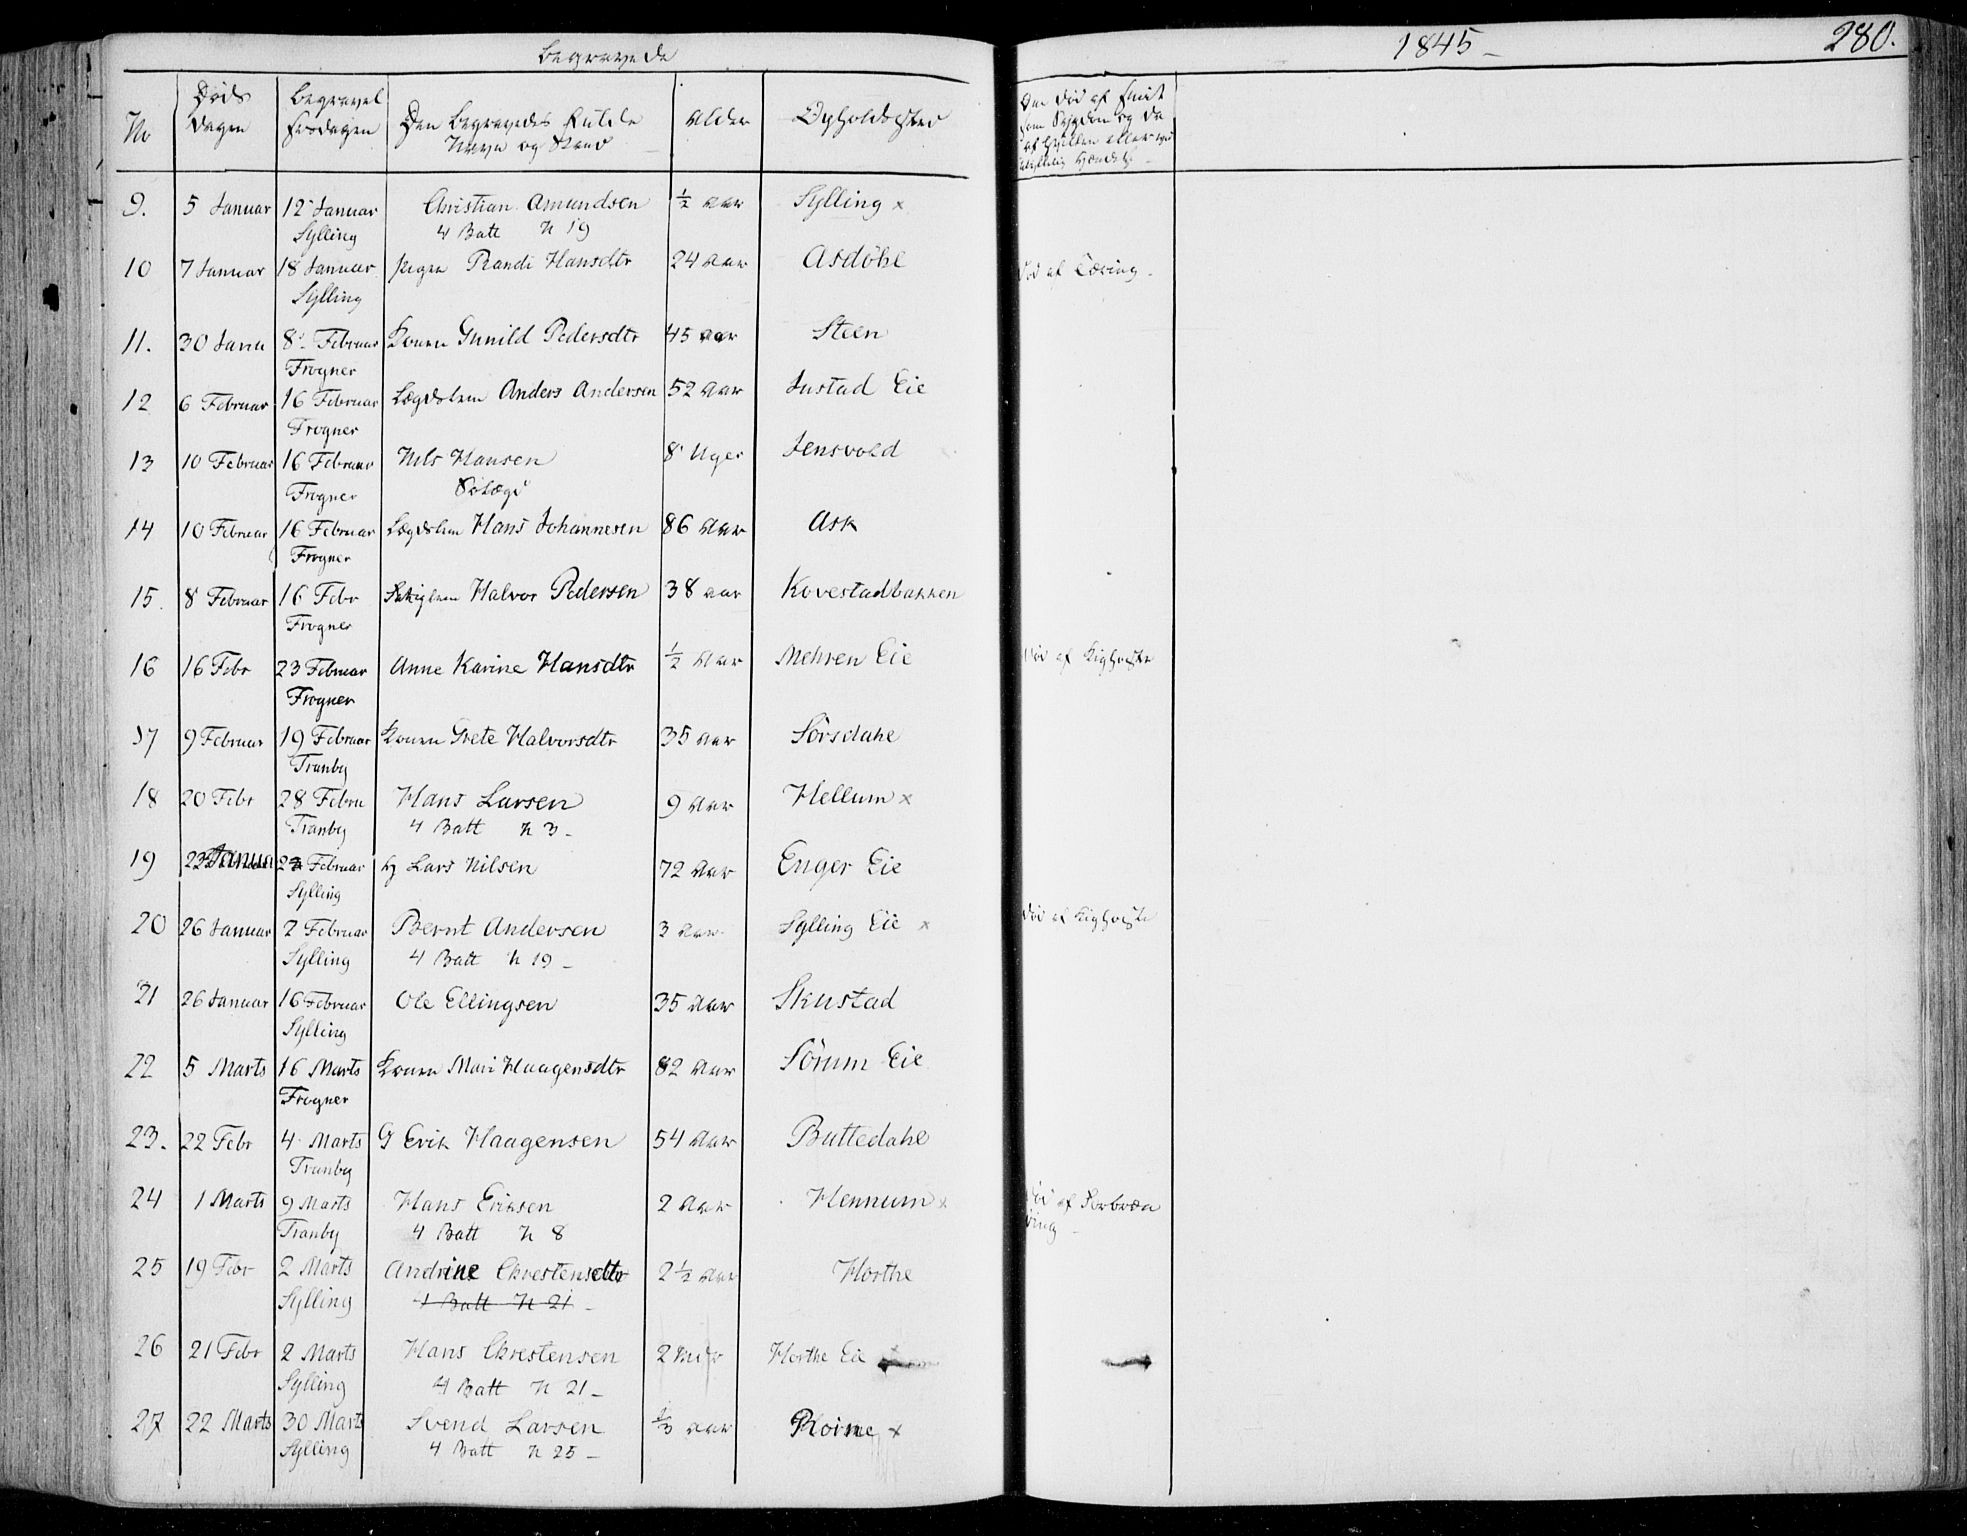 Begravede
1845 -
280.
No
Døds dagen
Begravel sesdagen
Den Begravedes fulde Navn og Stand
Alder
Opholdssted
Om død af smit som Sygdom og da af hvilken eller ved ulykkelig Hændelse
9. 5 Januar 12 Januar Christian Amundsen ½ Aar Sylling x
Sylling 4 Batt N 19
10 7 Januar 18 Januar Pigen Randi Hansdtr 24 Aar Asdöhl Død af Tæring -
Sylling
11. 30 Janu 8 Februar Konen Gunild Pedersdtr 45 Aar Steen
Frogner
12 6 Februar 16 Februar Lægdslem Anders Andersen 52 Aar Justad Eie
Frogner
13 10 Februar 16 Februar Nils Hansen 8 Uger Jensvold
Frogner
14 10 Februar 16 Februar Lægdslem Hans Johannesen 86 Aar Ask
Frogner
15. 8 Februar 16 Febr Halvor Pedersen 38 Aar Kovestadbakken
Frogner
16 16 Febr 23 Februar Anne Karine Hansdtr ½ Aar Mehren Eie Død af Kighoste
Frogner
17 9 Februar 19 Februar Konen Grete Halvorsdtr 35 Aar Sörsdahl
Tranby
18 20 Febr 28 Febru Hans Larsen 9 Aar Hellum x
Tranby 4 Batt N 3 -
19 Janua 2 Februar Lars Nilsen 72 Aar Enger Eie
Sylling
20 26 Januar 2 Februar Bernt Andersen 3 Aar Sylling Eie x Død af Kighoste
Sylling 4 Batt N 19 -
21 26 Januar 16 Februar Ole Ellingsen 35 Aar Skustad
Sylling
22 5 Marts 16 Marts Konen Mari Haagensdtr 82 Aar Sörum Eie
Frogner
23. 22 Febr 4 Marts G Erik Haagensen 54 Aar Buttedahl
Tranby
24 1 Marts 9 Marts Hans Eriksen 2 Aar Hennum x Død af Forbræn
Tranby 4 Batt N 8 ding -
25 19 Febr 2 Marts Andrine Chrestensdtr 2½ Aar Horthe
Sylling 4 Batt N 21 -
26 21 Febr 2 Marts Hans Chrestensen 2 Horthe Eie
Sylling 4 Batt N 21 -
27 22 Marts 30 Marts Svend Larsen ⅓ Aar Roine x
Sylling 4 Batt N 25 -